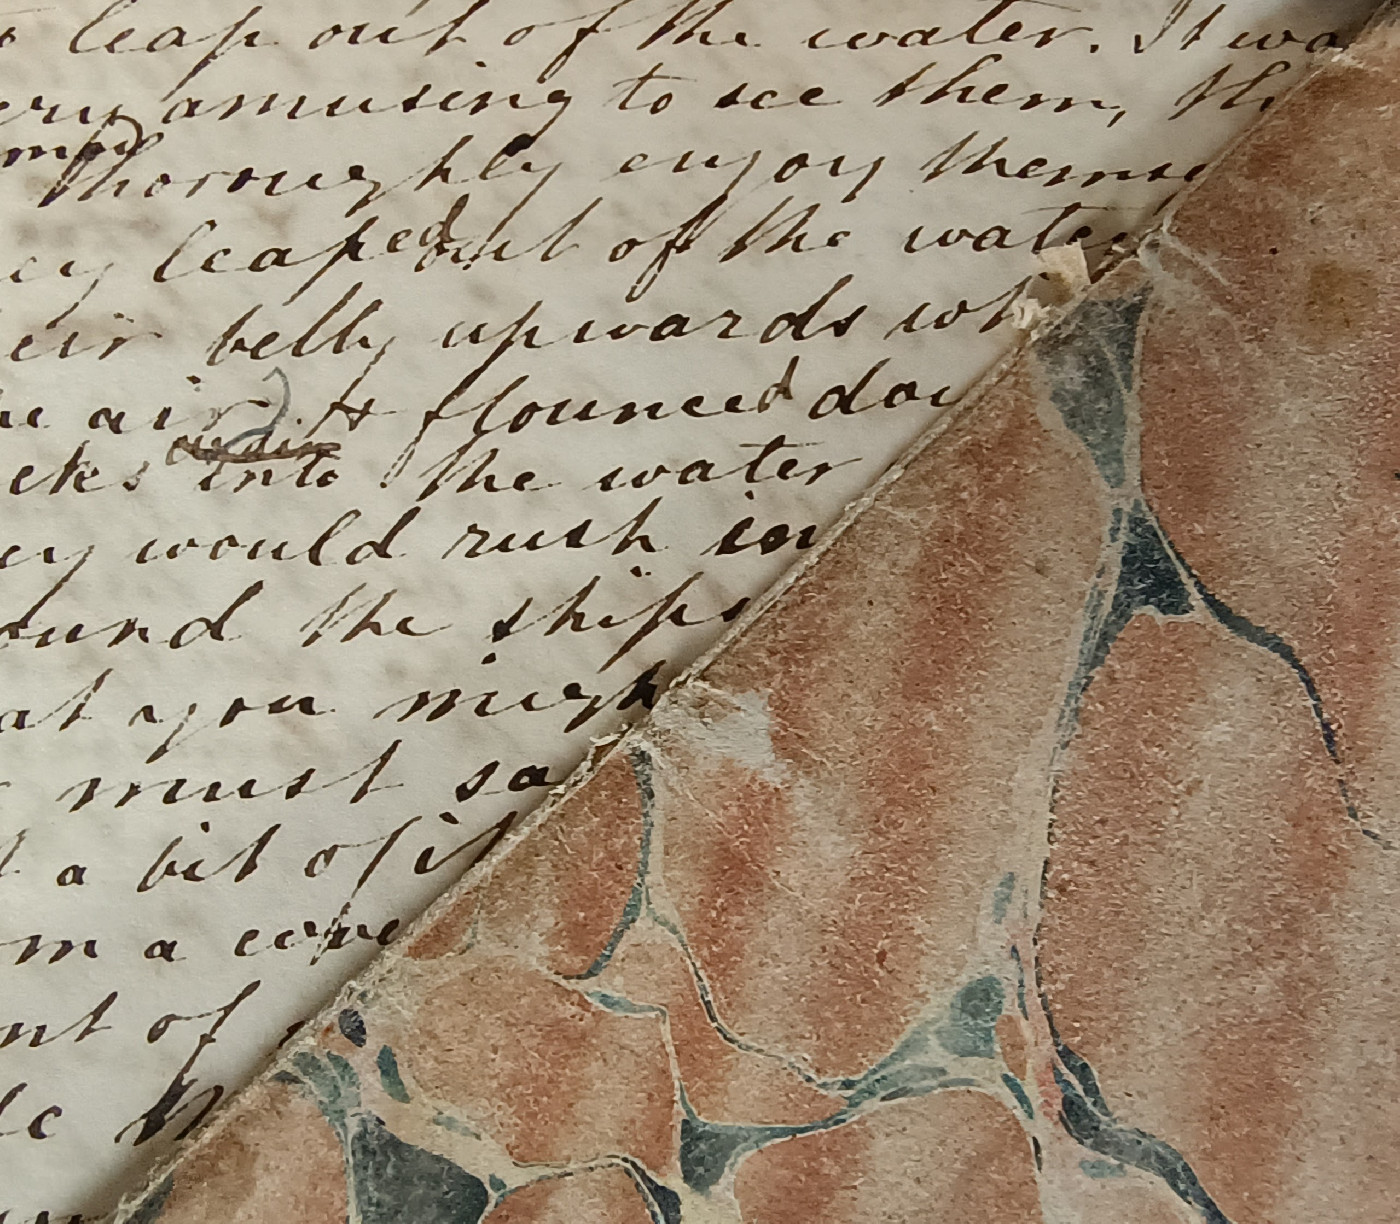 leap out of the water. It wa
ery amusing to see them, th
thoroughly enjoy themse
ey leaped out of the water
eir belly upwards wh
he air & flounced dow
cks into the water
ey would rush in
ound the ships
at you migh
must sa
a bit of it
m a cove
nt of